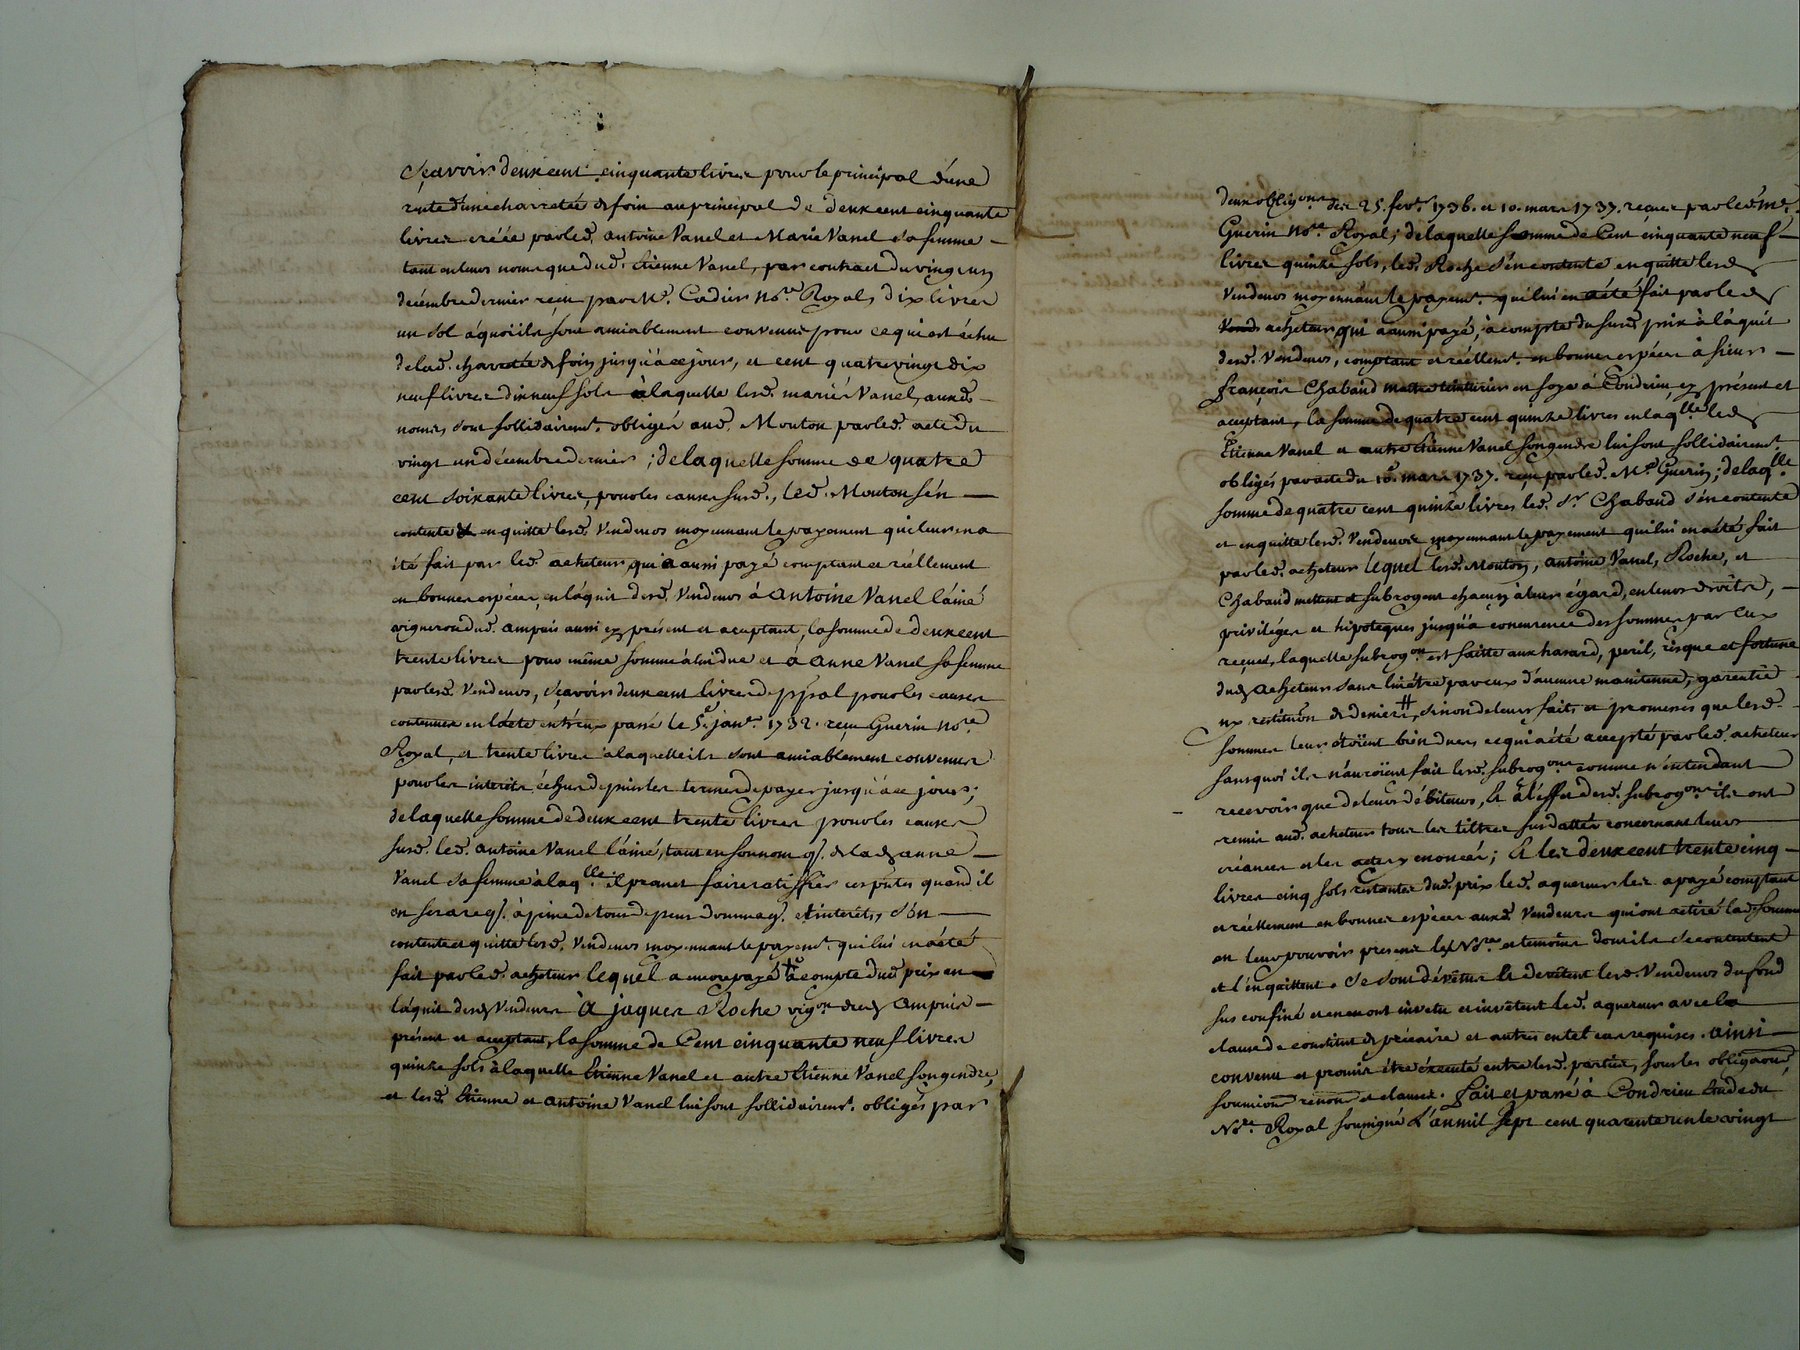 Sçavoir deux cent cinquante livres pour le principal d'une
rente d'une charretée de foin au principal de deux cent cinquante
livres créée par led. antoine Vanel et Marie Vanel sa femme
tant en leurs noms que dud. étienne Vanel, par contract du vingt un
décembre dernier reçu par Me. Cadier Nore. Royal, dix livres
un sol à quoi ils sont amiablement convenus pour ce qui est échu
de lad. charretée de foin jusqu'à ce jour, et cent quatre vingt dix
neuf livres dix neuf sols à laquelle lesd. mariés Vanel, auxd.
noms sont sollidairemt. obligés aud. Mouton par led. acte du
vingt un décembre dernier ; de laquelle somme de quatre
cent soixante livres, pour les causes susd., led. Mouton s'en
contente et en quitte lesd. Vendeurs moyennant le payement qui leur en a
été fait par led. acheteur, qui a aussi payé comptant et réellement
en bonnes espéces, en l'áquit desd. Vendeurs à antoine Vanel l'áiné
vigneron dud. ampuis aussi cy présent et acceptant, la somme de deux cent
trente livres pour même somme à lui due et à anne Vanel sa femme
par lesd. Vendeurs, sçavoir deux cent livres de ppal pour les causes
contenues en l'ácte entr'eux passé le 5e. janr. 1732. reçu Guerin Nore.
Royal, et trente livres à laquelle ils sont amiablement convenus
pour les interêts échus depuis les termes de payer jusqu'à ce jour ;
de laquelle somme de deux cent trente livres pour les causes
susd. led. antoine Vanel l'áiné, tant en son nom q. de lad. anne
Vanel sa femme à laqlle. il promet faire ratiffier ces pntes quand il
en sera req. à peine de tous depens dommag. et interêts, s'en
contente et quitte lesd. Vendeurs moyennant le payemt. qui lui en a été
fait par led. acheteur lequel a encore payé à compte dud. prix en
l'áquit desd. Vendeurs à jaques Roche vigon. dud. ampuis
présent et acceptant, la somme de Cent cinquante neuf livres
quinze sols à laquelle Etienne Vanel et autre Etienne Vanel son gendre,
et lesd. Etienne et antoine Vanel lui sont sollidairemt. obligés par
deux obligons. des 25. fevr. 1736. et 10. mars 1737. reçues par led. Me.
Guerin Nore. Royal ; de laquelle somme de Cent cinquante neuf
livres quinze sols, led. Roche s'en contente en quitte lesd.
Vendeurs moyennant le payemt. qui lui en a été fait par led.
acheteur, qui a aussi payé, à compte du susd. prix à l'áquit
desd. Vendeurs, comptant et réellemt. en bonnes espéces à sieur
françois Chabaud maître teinturier en soye à Condrieu cy présent et
acceptant, la somme de quatre cent quinze livres en laqlle. led.
Etienne Vanel et autre Etienne Vanel son gendre lui sont sollidairemt.
obligés par acte du 10e. mars 1737. reçu par led. Me. Guerin ; de laqlle.
somme de quatre cent quinze livres led. Sr. Chabaud s'en contente
et en quitte lesd. Vendeurs moyennant le payement qui lui en a été fait
par led. acheteur lequel lesd. Mouton, antoine Vanel, Roche, et
Chabaud mettent et subrogent chacun à leur égard, en leurs droits,
priviléges et hipoteques jusqu'à concurrence des sommes par Eux
reçues, laquelle subrogon. est faitte aux hasard, peril, risque et fortune
dud. acheteur sans lui être par eux d'aucune maintenue, garentie
ny restituon de deniers, sinon de leurs faits et promesses que lesd.
sommes leur étoient bien dues ce qui a été accepté par led. acheteur
sans quoi ils n'auroient fait lesd. subrogons. comme n'entendant
recevoir que de leurs débiteurs, Et à l'éffet desd. subrogons. ils ont
remis aud. acheteur tous les tiltres susdattés concernant leurs
créances et les actes y enoncés ; Et les deux cent trente cinq
livres cinq sols restantes dud. prix led. aquereur les a payé comptant
et réellement en bonnes espéces auxd. Vendeurs qui ont retiré lad. somme
en leur pouvoir presens led Nore. et temoins dont ils se contentent
et l'en quittent. Se sont dévêtus et devêtent lesd. Vendeurs du fond
sus confiné et en ont invetu et invêtent led. aquereur avec la
clause de constitut de précaire et autres en tel cas requises. ainsi
convenu et promis être éxecuté entre lesd. parties, sous les obligaons,
soumions renons et clauses. fait et passé à Condrieu Etude du
Nore. Royal soussigné L'an mil sept cent quarente un le vingt